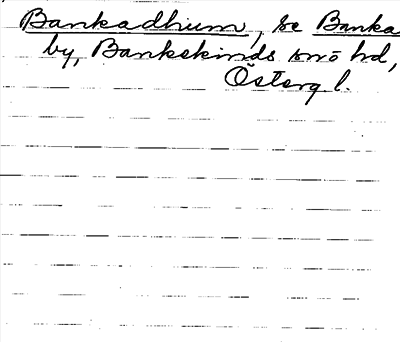 Bankadhum, se Banka
by, Bankekinds snö hd,
Österg. l.